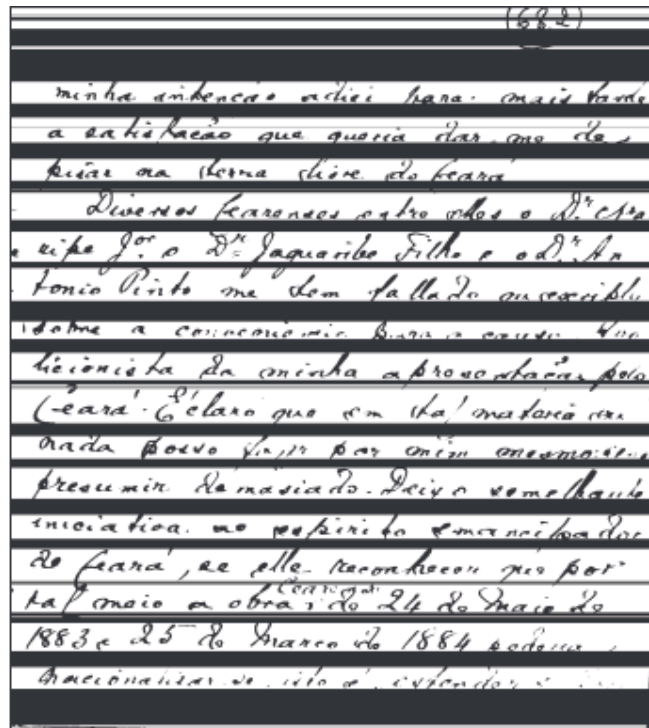 (682)
minha intenção adiei para mais tarde
a satisfação que queria dar me de
pisar na terra livre do Ceará
Diversos Cearenses entre elles o Dr. Ara
ripe Jor. o Dr. Jaguaribe Filho e o Dr. An
tonio Pinto me tem fallado
sobre a para a causa
licionista da minha apresentação pelo
Ceará. É claro que em tal materia eu
nada posso por mim mesmo sem
presumir demasiado. Deixo semelhante
iniciativa ao espirito emancipador
do Ceará, se elle reconhecer que por
tal meio a obra de 24 de Maio de
1883 e 25 de Março de 1884
nacionalisar se isto é extender